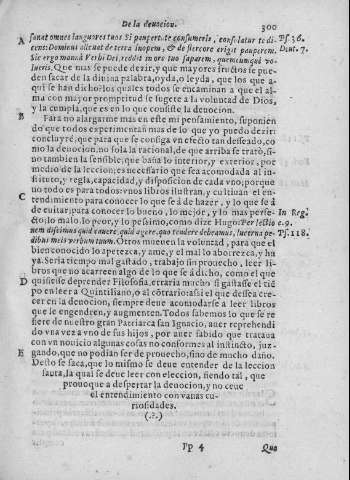 De la deuocion.
300
A sanat omnes languores tuos Si pauper, te consumeris, consolatur te di-
cens: Dominus alleuat de terra inopem, & de stercore erigit pauperem.
Sic ergo manna Verbi Dei, reddit in ore tuo saporem, quemcumque vo-
lueris. Que mas se puede dezir, y que mayores fructos se pue
den sacar de la diuina palabra, oyda, o leyda, que los que a-
qui se han dicho: los quales todos se encaminan a que el al-
ma con mayor promptitud se sugete a la voluntad de Dios,
y la cumpla, que es en lo que consiste la deuocion.
B Para no alargarme mas en este mi pensamiento, suponien
do que todos experimentan mas de lo que yo puedo dezir:
concluyré, que para que se consiga vn efecto tan desseado, co
mo la deuocion, no sola la racional, de que arriba se trató, si-
no tambien la sensible, que baña lo interior, y exterior, por
medio de la leccion; es necessario que sea acomodada al in-
stituto, y regla, capacidad, y disposicion de cada vno; porque
no todo es para todos: vnos libros ilustran, y cultiuan el en-
C tendimiento para conocer lo que se à de hazer, y lo que se á
de euitar; para conocer lo bueno, lo mejor, y lo mas perfe-
cto, lo malo, lo peor, y lo pessimo, como dize Hugo: Per lectio
nem discimus quid cauere, quid agere, quo tendere debeamus, lucerna pe-
dibus meis verbum tuum. Otros mueuen la voluntad, para que el
bien conocido lo apetezca, y ame, y el mal lo aborrezca, y hu
ya. Seria tiempo mal gastado, trabajo sin prouecho, leer li-
bros que no acarreen algo de lo que se á dicho, como el que
D quisiesse deprender Filosofia, erraria mucho si gastasse el tié
po en leer a Quintiliano, o al côtrario: assi el que dessea cre-
cer en la deuocion, siempre deue acomodarse a leer libros
que le engendren, y augmenten. Todos sabemos lo que se re
fiere de nuestro gran Patriarca san Ignacio, auer reprehendi
do vna vez a vno de sus hijos, por auer sabido que trataua
con vn nouicio algunas cosas no conformes al instincto, juz-
E gando, que no podian ser de prouecho, sino de mucho daño.
Desto se saca, que lo mismo se deue entender de la leccion
santa, la qual se deue leer con eleccion, siendo tal, que
prouoque a despertar la deuocion, y no ceue
el entendimiento con vanas cu-
riosidades.
(.?.)
Pp 4
Que
Ps. 36.
Diut. 7.
In Reg.
c. 9.
Ps. 118.